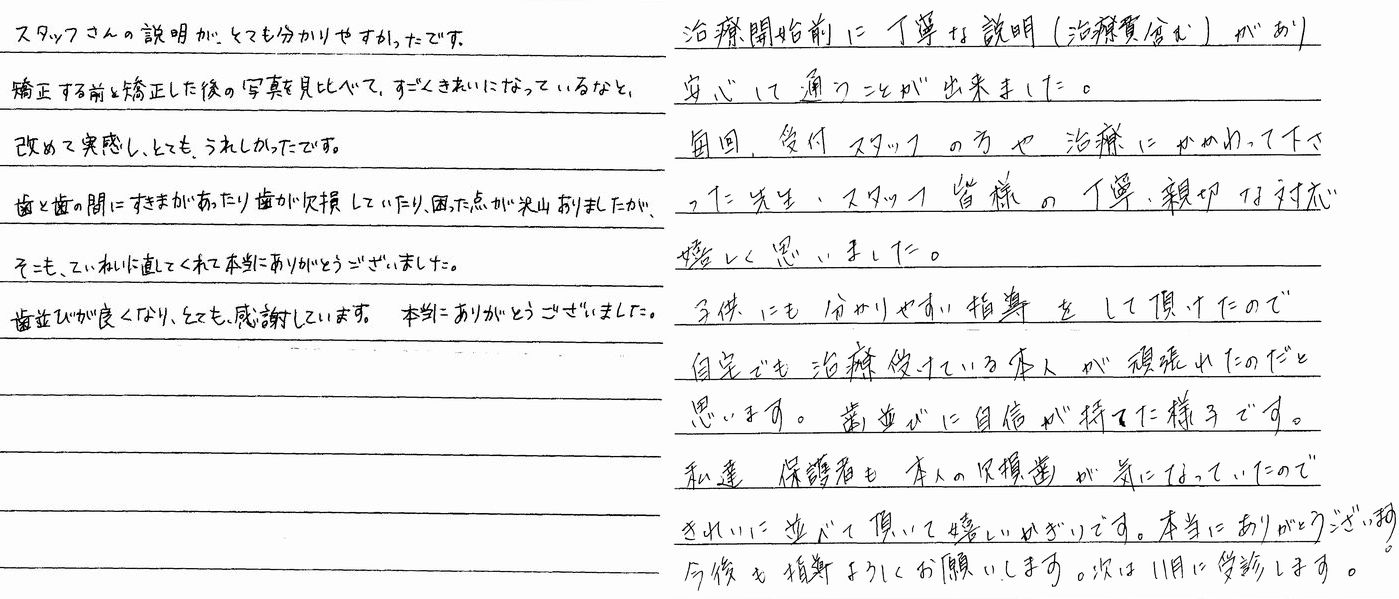 スタッフさんの説明が、とても分かりやすかったです。
矯正する前と矯正した後の写真を見比べて、すごくきれいになっているなと、
改めて実感し、とても、うれしかったです。
歯と歯の間にすきまがあったり歯が欠損していたり、困った点が沢山ありましたが、
そこも、ていねいに直してくれて本当にありがとうございました。
歯並びが良くなり、とても、感謝しています。 本当にありがとうございました。
治療開始前に丁寧な説明(治療費含む)があり
安心して通うことが出来ました。
毎回、受付スタッフの方や治療にかかわって下さ
った先生、スタッフ皆様の丁寧、親切な対応
嬉しく思いました。
子供にも分かりやすい指導をして頂けたので
自宅でも治療受けている本人が頑張れたのだと
思います。歯並びに自信が持てた様子です。
私達 保護者も本人の欠損歯が気になっていたので
きれいに並べて頂いて嬉しいかぎりです。本当にありがとうございます。
今後も指導よろしくお願いします。次は11月に受診します。